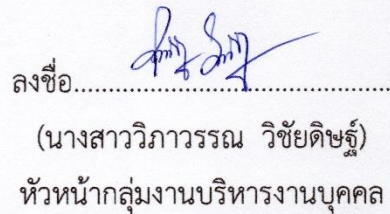 ลงชื่อ........................................
(นางสาววิภาวรรณ วิชัยดิษฐ์)
หัวหน้ากลุ่มงานบริหารงานบุคคล